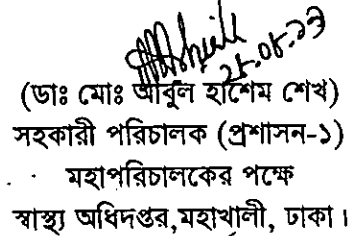 (ডাঃ মোঃ আবুল হাশেম শেখ)
সহকারী পরিচালক (প্রশাসন-১)
মহাপরিচালকের পক্ষে
স্বাস্থ্য অধিদপ্তর,মহাখালী, ঢাকা।